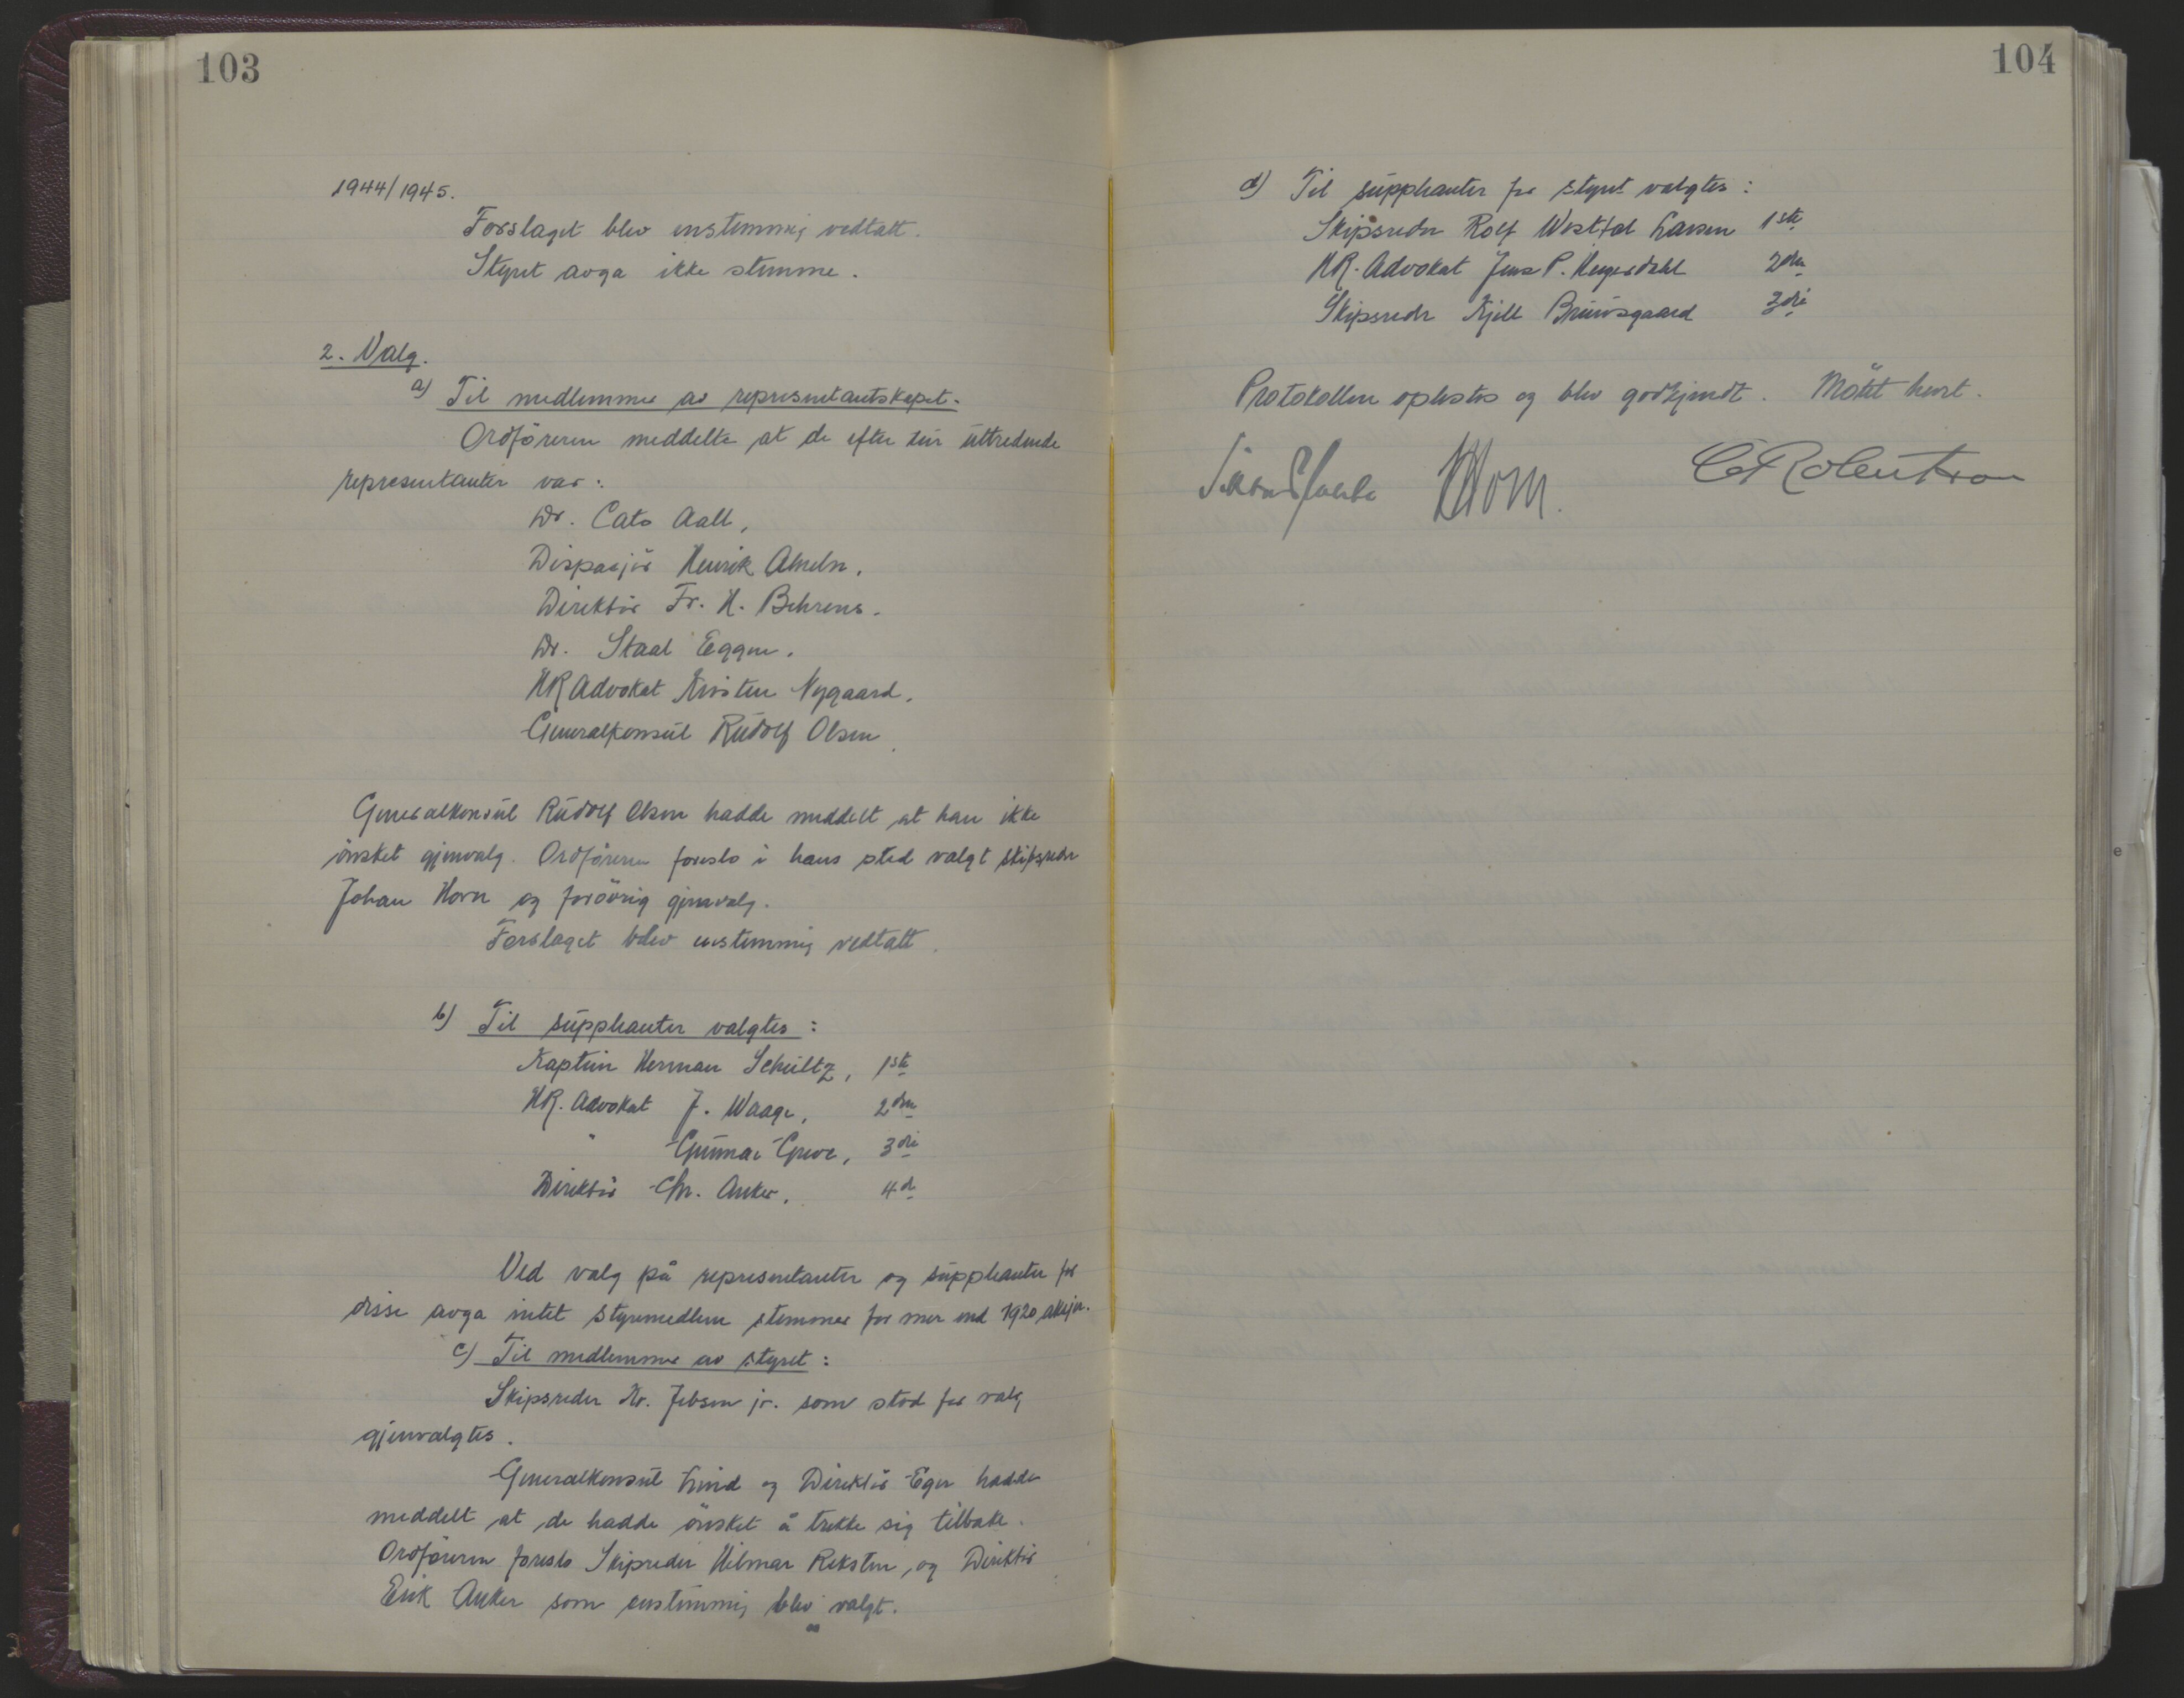 103
1944/1945.
Forslaget blev enstemmig vedtatt.
Styret avga ikke stemme.
2. Valg.
a) Til medlemmer av representantskapet.
Ordföreren meddelte at de efter tur uttredende
representanter var:
Dr. Cato Aall,
Dispasjör Henrik Ameln.
Direktör Fr. H. Behrens.
Dr. Staal Eggen.
HR Advokat Kirsten Nygaard.
Generalkonsul Rudolf Olsen
Generalkonsul Rudolf Olsen hadde meddelt at han ikke
önsket gjenvalg. Ordföreren foreslo i hans sted valgt skipsreder
Johan Horn og forövrig gjenvalg.
Forslaget blev enstemmig vedtatt.
b) Til suppleanter valgtes:
Kaptein Herman Schultz, 1ste
HR. Advokat J. Waage, 2den
" Gunnar Greve, 3dje
Direktör Chr. Anker. 4de
Ved valg på representanter og suppleanter for
disse avga intet styremedlem stemmer for mer end 1920 aksjer.
c) Til medlemmer av styret:
Skipsreder Kr. Jebsen jr. som stod for valg
gjenvalgtes.
Generalkonsul Lund og Direktör Eger hadde
meddelt at de hadde önsket å trekke sig tilbake.
Ordföreren foreslo Skipreder Hilmar Reksten, og Direktör
Erik Anker som enstemmig blev valgt.
104
d) Til suppleanter for styret valgtes:
Skipsreder Rolf Westfal Larsen 1ste
HR. Advokat Jens P. Heyerdahl 2den
Skipsredr Kjell Bruusgaard 3dje
Protokollen oplestes og blev godkjendt. Mötet hevet.
C Robertson